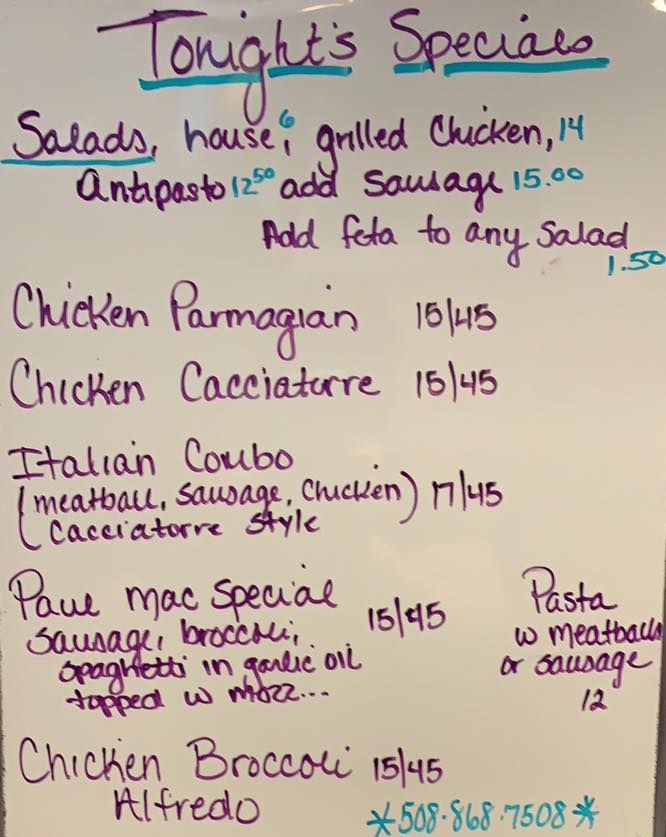 Tonight's Specials
Salads, house, 6 grilled Chicken, 14
Antipasto 12 50 add Sausage 15.00
Add feta to any Salad
1.50
Chicken Parmagian 15/45
Chicken Cacciatorre 15/45
Italian Combo
(meatball, Sausage, Chicken) 17/45
Cacciatorre Style
Paul Mac Special
Sausage, broccoli, 15/45
spaghetti in garlic oil
topped w mozz...
Pasta
w meatballs
or sausage
12
Chicken Broccoli 15/45
Alfredo
*508.868.7508*